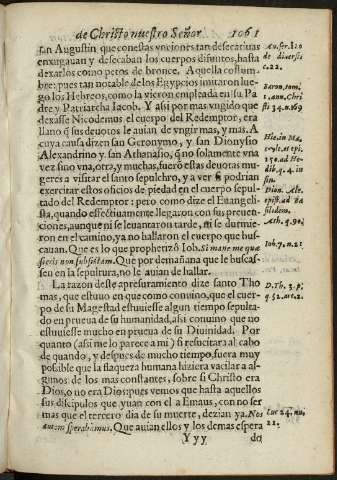 de Christo nuestro Señor 1061
san Augustin que con estas vnciones tan desecatiuas
enxugauan y desecaban los cuerpos difuntos, hasta
dexarlos como petos de bronce. Aquella costum-
bre: pues tan notable de los Egypcios imitaron lue-
go los Hebreos, como la vieron empleada en su Pa
dre y Patriarcha Iacob. Y asi por mas vngido que
dexasse Nicodemus el cuerpo del Redemptor, era
llano q̃ sus deuotos le auian de vngir mas, y mas. A
cuya causa dizen san Geronymo, y san Dionysio
Alexandrino y san Athanasio, q̃ no solamente vna
vez sino vna, otra, y muchas, fuerõ estas deuotas mu-
geres a visitar el santo sepulchro, y a ver si podrian
exercitar estos oficios de piedad en el cuerpo sepul-
tado del Redemptor: pero como dize el Euangelis-
sta, quando effectiuamente llegaron con sus preuen-
ciones, aunque ni se leuantaron tarde, ni se durmie-
ron en el camino, ya no hallaron el cuerpo que bus-
cauan. Que es lo que prophetizò Iob. Si mane me quæ
sieris non subsistam. Que por de mañana que le buscas-
seu en la sepultura, no le auian de hallar.
La razon deste apresuramiento dize santo Tho
mas, que estuuo en que como conuino, que el cuer-
po de su Magestad estuuiesse algun tiempo sepulta-
do en prueua de su humanidad, asi conuino que no
estuuiesse mucho en prueua de su Diuinidad. Por
quanto (asi me lo parece a mi) si resucitara al cabo
de quando, y despues de mucho tiempo, fuera muy
posible que la flaqueza humana hiziera vacilar a al-
gunos de los mas constantes, sobre si Christo era
Dios, o no era Dios: pues vemos que hasta aquellos
sus discipulos que yuan con el a Emaus, con no ser
mas que el tercero dia de su muerte, dezian ya. Nos
autem sperabamus. Que auian ellos y los demas espera
Y y y do
Au. ser. 120
de diuersis
c. 22.
Baron. tom.
1. ann. Chri
sti 34. n. 169
Hie. in Ma
epist.
150. ad He
dib. q. 4. in
fin.
Dion. Ale.
epist. ad Ba
silidem.
Ath. q. 90.
Iob. 7. n. 21.
D. Th. 3. p.
q. 52. ar. 2.
Luc 24. nu.
21.